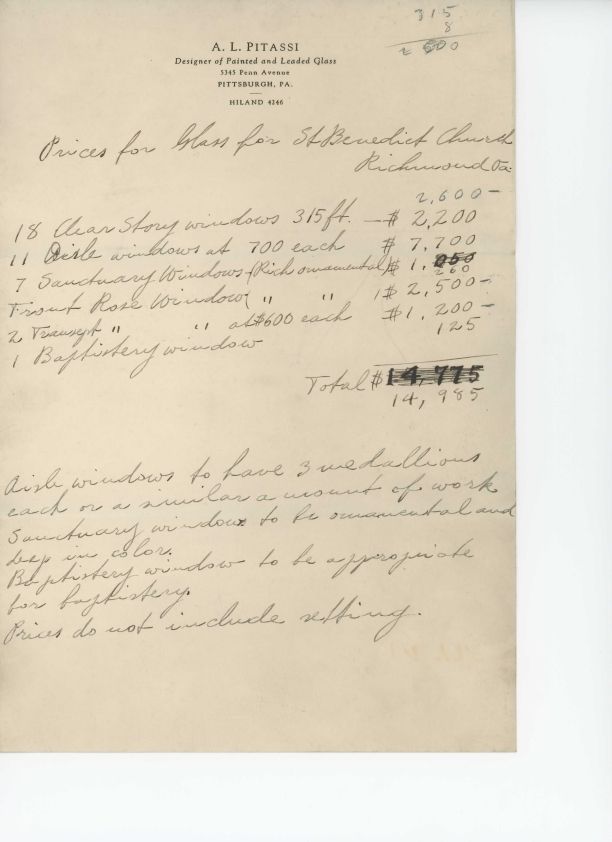 315
8
A. L. PITASSI
Designer of Painted and Leaded Glass
5345 Penn Avenue
PITTSBURGH, PA.
HILAND 4246
Prices for Glass for St Benedict Church
Richmond Va.
2,600-
18 Clear Story windows 315 ft. - $ 2,200
11 Aisle windows at 700 each $ 7,700
7 Sanctuary Windows (Rich ornamental) $ 1,050
260
Front Rose Window ( " " ) $ 2,500-
2 Transept " " at $600 each $1,200-
1 Baptistery window 125
Total $14,775
14,985
Aisle windows to have 3 medallions
each or a similar amount of work
Sanctuary windows to be ornamental and
deep in color.
Baptistery window to be appropriate
for baptistery.
Prices do not include setting.